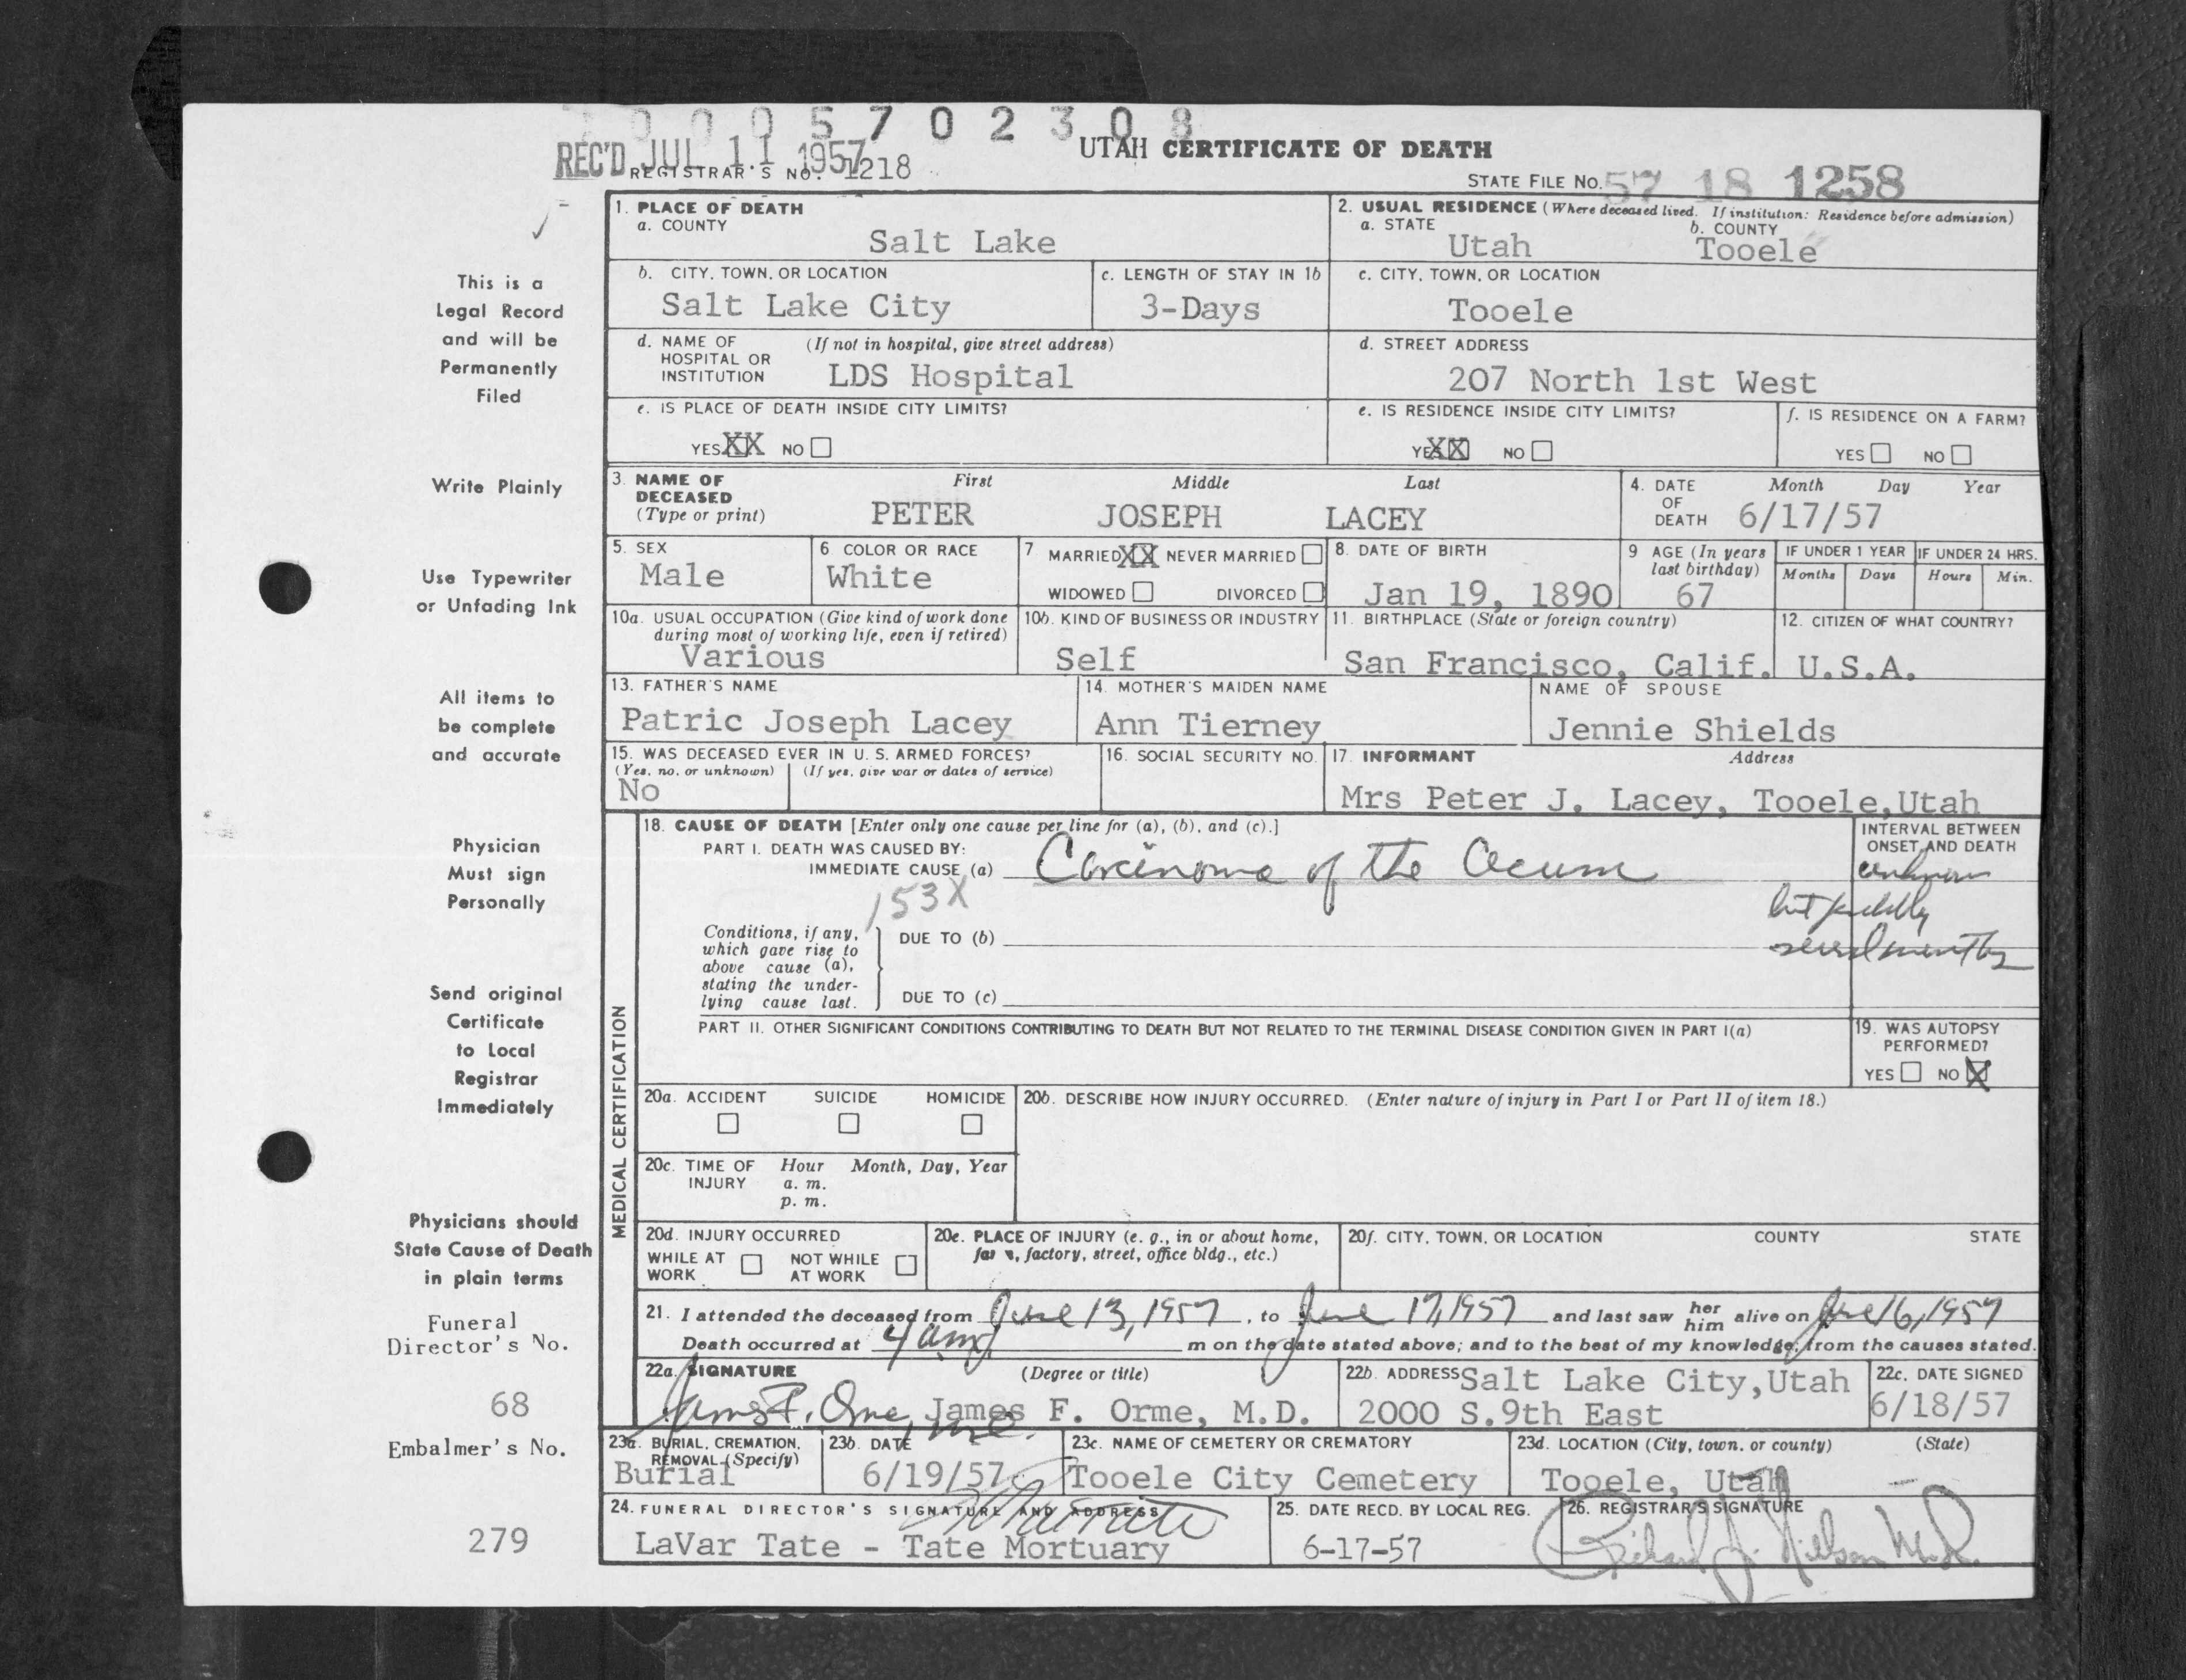 0005702308
REC'D JUL 11 1957
REGISTRAR'S NO. 1218
UTAH CERTIFICATE OF DEATH
STATE FILE NO. 57 18 1258
This is a
Legal Record
and will be
Permanently
Filed
Write Plainly
Use Typewriter
or Unfading Ink
All items to
be complete
and accurate
Physician
Must sign
Personally
Send original
Certificate
to Local
Registrar
Immediately
Physicians should
State Cause of Death
in plain terms
Funeral
Director's No.
68
Embalmer's No.
279
1. PLACE OF DEATH
a. COUNTY
Salt Lake
2. USUAL RESIDENCE (Where deceased lived. If institution: Residence before admission)
a. STATE
Utah
b. COUNTY
Tooele
b. CITY, TOWN, OR LOCATION
Salt Lake City
c. LENGTH OF STAY IN 1b
3-Days
c. CITY, TOWN, OR LOCATION
Tooele
d. NAME OF (If not in hospital, give street address)
HOSPITAL OR
INSTITUTION
LDS Hospital
d. STREET ADDRESS
207 North 1st West
e. IS PLACE OF DEATH INSIDE CITY LIMITS?
YES XX NO
e. IS RESIDENCE INSIDE CITY LIMITS?
YES XX NO
f. IS RESIDENCE ON A FARM?
YES NO
3. NAME OF
DECEASED
(Type or print)
First Middle Last
PETER JOSEPH LACEY
4. DATE
OF
DEATH
Month Day Year
6/17/57
5. SEX
Male
6 COLOR OR RACE
White
7 MARRIED XX NEVER MARRIED
WIDOWED DIVORCED
8. DATE OF BIRTH
Jan 19, 1890
9 AGE (In years
last birthday)
67
IF UNDER 1 YEAR
Months Days
IF UNDER 24 HRS.
Hours Min.
10a. USUAL OCCUPATION (Give kind of work done
during most of working life, even if retired)
Various
10b. KIND OF BUSINESS OR INDUSTRY
Self
11. BIRTHPLACE (State or foreign country)
San Francisco, Calif.
12. CITIZEN OF WHAT COUNTRY?
U.S.A.
13. FATHER'S NAME
Patric Joseph Lacey
14. MOTHER'S MAIDEN NAME
Ann Tierney
NAME OF SPOUSE
Jennie Shields
15. WAS DECEASED EVER IN U. S. ARMED FORCES?
(Yes, no, or unknown) (If yes, give war or dates of service)
No
16. SOCIAL SECURITY NO.
17. INFORMANT Address
Mrs Peter J. Lacey, Tooele,Utah
MEDICAL CERTIFICATION
18. CAUSE OF DEATH [Enter only one cause per line for (a), (b), and (c).]
PART I. DEATH WAS CAUSED BY:
IMMEDIATE CAUSE (a) Carcinoma of the Cecum
153X
INTERVAL BETWEEN
ONSET AND DEATH
unknown
but probably
several months
Conditions, if any,
which gave rise to
above cause (a),
stating the under-
lying cause last.
DUE TO (b)
DUE TO (c)
PART II. OTHER SIGNIFICANT CONDITIONS CONTRIBUTING TO DEATH BUT NOT RELATED TO THE TERMINAL DISEASE CONDITION GIVEN IN PART I(a)
19. WAS AUTOPSY
PERFORMED?
YES NO X
20a. ACCIDENT SUICIDE HOMICIDE
20b. DESCRIBE HOW INJURY OCCURRED. (Enter nature of injury in Part I or Part II of item 18.)
20c. TIME OF Hour Month, Day, Year
INJURY a. m.
p. m.
20d. INJURY OCCURRED
WHILE AT NOT WHILE
WORK AT WORK
20e. PLACE OF INJURY (e. g., in or about home,
farm, factory, street, office bldg., etc.)
20f. CITY, TOWN, OR LOCATION COUNTY STATE
21. I attended the deceased from June 13, 1957, to June 17, 1957 and last saw her him alive on June 16, 1957
Death occurred at 4 am m on the date stated above; and to the best of my knowledge, from the causes stated.
22a. SIGNATURE (Degree or title)
James F. Orme, M.D. James F. Orme, M.D.
22b. ADDRESS Salt Lake City,Utah
2000 S.9th East
22c. DATE SIGNED
6/18/57
23a. BURIAL, CREMATION,
REMOVAL (Specify)
Burial
23b. DATE
6/19/57
23c. NAME OF CEMETERY OR CREMATORY
Tooele City Cemetery
23d. LOCATION (City, town, or county) (State)
Tooele, Utah
24. FUNERAL DIRECTOR'S SIGNATURE AND ADDRESS
LaVar Tate - Tate Mortuary
25. DATE RECD. BY LOCAL REG.
6-17-57
26. REGISTRAR'S SIGNATURE
Richard J. Nelson M.D.